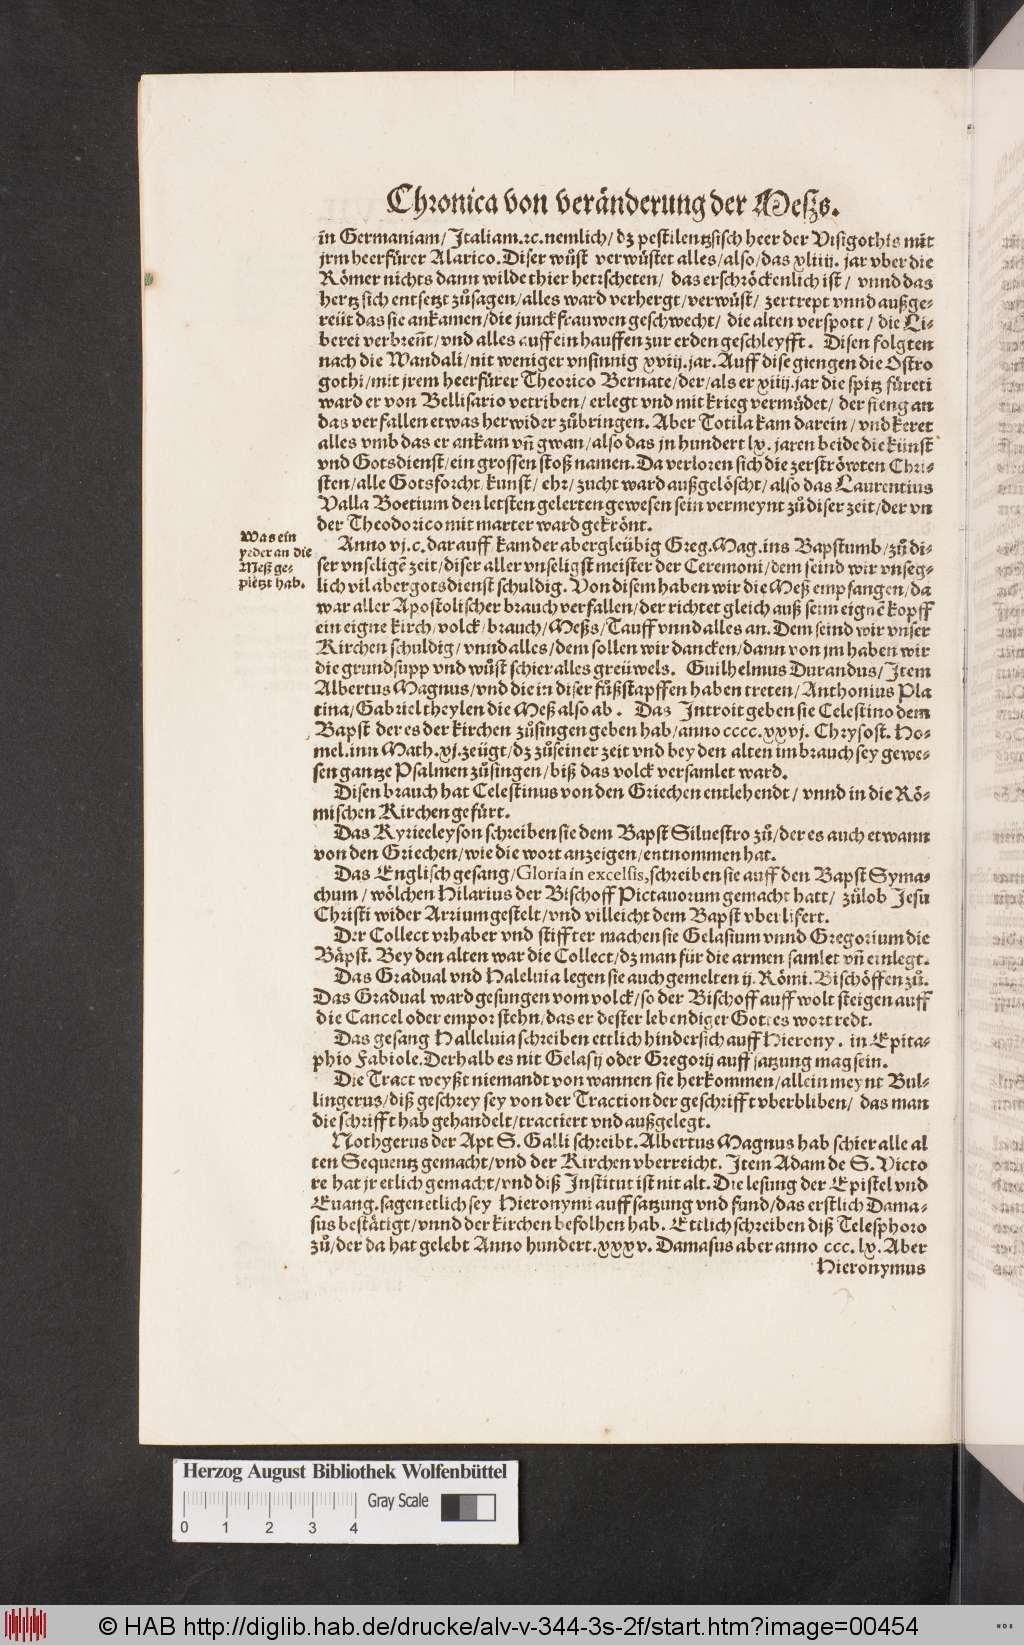 Chronica von veränderung der Meſzs.
in Germaniam/ Italiam.ꝛc.nemlich/ dz peſtilentzſiſch heer der Viſigothis mit
jrm heerfuͤrer Alarico. Diſer wuͤſt verwuͤſtet alles/ alſo/ das xliiij. jar vber die
Roͤmer nichts dann wilde thier herꝛſcheten/ das erſchroͤckenlich iſt/ vnnd das
hertz ſich entſetzt zuͦſagen/ alles ward verhergt/ verwuͤſt/ zertrept vnnd außge-
reüt das ſie ankamen/ die junckfrauwen geſchwecht/ die alten verſpott/ die Li-
berei verbreñt/ vnd alles auff ein hauffen zur erden geſchleyfft. Diſen folgten
nach die Wandali/ nit weniger vnſinnig xviij. jar. Auff diſe giengen die Oſtro
gothi/ mit jrem heerfuͤrer Theorico Bernate/ der/ als er xiiij. jar die ſpitz fuͤreti
ward er von Belliſario vetriben/ erlegt vnd mit krieg vermuͤdet/ der fieng an
das verfallen etwas herwider zuͦbringen. Aber Totila kam darein/ vnd keret
alles vmb das er ankam vñ gwan/ alſo das jn hundert lx. jaren beide die künſt
vnd Gotsdienſt/ ein groſſen ſtoß namen. Da verloren ſich die zerſtroͤwten Chri-
ſten/ alle Gotsforcht/ kunſt/ ehr/ zucht ward außgeloͤſcht/ alſo das Laurentius
Valla Boetium den letſten gelerten geweſen ſein vermeynt zuͦ diſer zeit/ der vn
der Theodorico mit marter ward gekroͤnt.
Was ein
yeder an die
Meß ge-
pletzt hab.
Anno vj.c. darauff kam der aberglеübig Greg. Mag. ins Bapſtumb/ zuͦ di-
ſer vnſeligẽ zeit/ diſer aller vnſeligſt meiſter der Ceremoni/ dem ſeind wir vnſeg-
lich vil abergotsdienſt ſchuldig. Von diſem haben wir die Meß empfangen/ da
war aller Apoſtoliſcher brauch verfallen/ der richtet gleich auß ſeim eignẽ kopff
ein eigne kirch/ volck/ brauch/ Meßs/ Tauff vnnd alles an. Dem ſeind wir vnſer
Kirchen ſchuldig/ vnnd alles/ dem ſollen wir dancken/ dann von jm haben wir
die grundſupp vnd wuͤſt ſchier alles greüwels. Guilhelmus Durandus/ Item
Albertus Magnus/ vnd die in diſer fuͦßſtapffen haben treten/ Anthonius Pla
tina/ Gabriel theylen die Meß alſo ab. Das Introit geben ſie Celeſtino dem
Bapſt der es der kirchen zuͦſingen geben hab/ anno cccc.xxvj. Chryſoſt. Ho-
mel. inn Math. xj. zeügt/ dz zuͦ ſeiner zeit vnd bey den alten im brauch ſey gewe-
ſen gantze Pſalmen zuͦſingen/ biß das volck verſamlet ward.
Diſen brauch hat Celeſtinus von den Griechen entlehendt/ vnnd in die Roͤ-
miſchen Kirchen gefuͤrt.
Das Kyrieeleyſon ſchreiben ſie dem Bapſt Silueſtro zuͦ/ der es auch etwann
von den Griechen/ wie die wort anzeigen/ entnommen hat.
Das Engliſch geſang/ Gloria in excelſis, ſchreiben ſie auff den Bapſt Syma-
chum/ woͤlchen Hilarius der Biſchoff Pictauorum gemacht hatt/ zuͦlob Jeſu
Chriſti wider Arrium geſtelt/ vnd villeicht dem Bapſt vberlifert.
Der Collect vrhaber vnd ſtiffter machen ſie Gelaſium vnnd Gregorium die
Baͤpſt. Bey den alten war die Collect/ dz man für die armen ſamlet vñ einlegt.
Das Gradual vnd Haleluia legen ſie auch gemelten ij. Roͤmi. Biſchoͤffen zuͦ.
Das Gradual ward geſungen vom volck/ ſo der Biſchoff auff wolt ſteigen auff
die Cancel oder empor ſtehn/ das er deſter lebendiger Gottes wort redt.
Das geſang Halleluia ſchreiben ettlich hinderſich auff Hierony. in Epita-
phio Fabiole. Derhalb es nit Gelaſij oder Gregorij auffſatzung mag ſein.
Die Tract weyßt niemandt von wannen ſie herkommen/ allein meynt Bul-
lingerus/ diß geſchrey ſey von der Traction der geſchrifft vberbliben/ das man
die ſchrifft hab gehandelt/ tractiert vnd außgelegt.
Nothgerus der Apt S. Galli ſchreibt. Albertus Magnus hab ſchier alle al
ten Sequentz gemacht/ vnd der Kirchen vberreicht. Item Adam de S. Victo
re hat jr etlich gemacht/ vnd diß Inſtitut iſt nit alt. Die leſung der Epiſtel vnd
Euang. ſagen etlich ſey Hieronymi auffſatzung vnd fund/ das erſtlich Dama-
ſus beſtaͤtigt/ vnnd der kirchen befolhen hab. Ettlich ſchreiben diß Teleſphoro
zuͦ/ der da hat gelebt Anno hundert.xxxv. Damaſus aber anno ccc. lx. Aber
Hieronymus
Herzog August Bibliothek Wolfenbüttel
Gray Scale
0 1 2 3 4
© HAB http://diglib.hab.de/drucke/alv-v-344-3s-2f/start.htm?image=00454